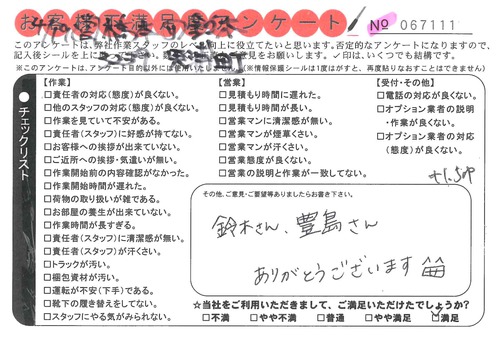 お客様満足度アンケート
№ 067111
このアンケートは、弊社作業スタッフのレベル向上に役立てたいと思います。否定的なアンケートになりますので、
記入後シールを上に ご意見をお願いします。✓印は、いくつでも結構です。
※このアンケートは、アンケート目的以外には使用いたしません。(※情報保護シールは1度はがすと、再度貼りなおすことはできません)
チェックリスト
【作業】
□責任者の対応(態度)が良くない。
□他のスタッフの対応(態度)が良くない。
□作業を見ていて不安がある。
□責任者(スタッフ)に好感が持てない。
□お客様への挨拶が出来ていない。
□ご近所への挨拶・気遣いが無い。
□作業開始前の内容確認がなかった。
□作業開始時間が遅れた。
□荷物の取り扱いが雑である。
□お部屋の養生が出来ていない。
□作業時間が長すぎる。
□責任者(スタッフ)に清潔感が無い。
□責任者(スタッフ)が汗くさい。
□トラックが汚い。
□梱包資材が汚い。
□運転が不安(下手)である。
□靴下の履き替えをしてない。
□スタッフにやる気がみられない。
【営業】
□見積もり時間に遅れた。
□見積もり時間が長い。
□営業マンに清潔感が無い。
□営業マンが煙草くさい。
□営業マンが汗くさい。
□営業態度が良くない。
□営業の説明と作業が一致してない。
【受付・その他】
□電話の対応が良くない。
□オプション業者の説明
・作業が良くない。
□オプション業者の対応
(態度)が良くない。
+1.5P
その他、ご意見・ご要望等ありましたらお書き下さい。
鈴木さん、豊島さん
ありがとうございます
☆当社をご利用いただきまして、ご満足いただけたでしょうか?
□不満 □やや不満 □普通 □やや満足 ☑満足